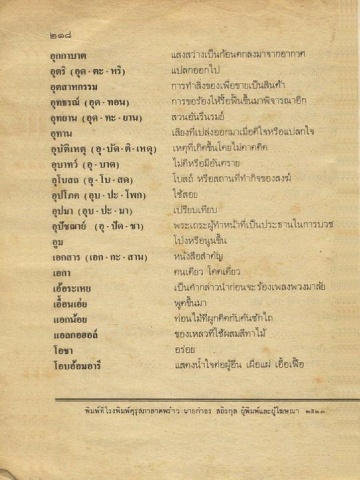 ๒๑๘
อุกกาบาต แสงสว่างเป็นก้อนตกลงมาจากอากาศ
อุตริ (อุด - ตะ - หริ) แปลกออกไป
อุตสาหกรรม การทำสิ่งของเพื่อขายเป็นสินค้า
อุทธรณ์ (อุด - ทอน) การขอร้องให้รื้อฟื้นขึ้นมาพิจารณาอีก
อุทยาน (อุด - ทะ - ยาน) สวนอันรื่นรมย์
อุทาน เสียงที่เปล่งออกมาเมื่อดีใจหรือแปลกใจ
อุบัติเหตุ (อุ - บัด - ติ - เหตุ) เหตุที่เกิดขึ้นโดยไม่คาดคิด
อุบาทว์ (อุ - บาด) ไม่ดีหรือมีอันตราย
อุโบสถ (อุ - โบ - สด) โบสถ์ หรือสถานที่ทำกิจของสงฆ์
อุปโภค (อุบ - ปะ - โพก) ใช้สอย
อุปมา (อุบ - ปะ - มา) เปรียบเทียบ
อุปัชฌาย์ (อุ - ปัด - ชา) พระเถระผู้ทำหน้าที่เป็นประธานในการบวช
อูม โป่งหรือนูนขึ้น
เอกสาร (เอก - กะ - สาน) หนังสือสำคัญ
เอกา คนเดียว โดดเดี่ยว
เอ้อระเหย เป็นคำกล่าวนำก่อนจะร้องเพลงพวงมาลัย
เอื้อนเอ่ย พูดขึ้นมา
แอกน้อย ท่อนไม้ที่ผูกติดกับคันชักไถ
แอลกอฮอล์ ของเหลวที่ใช้ผสมสีทาไม้
โอชา อร่อย
โอบอ้อมอารี แสดงน้ำใจต่อผู้อื่น เผื่อแผ่ เอื้อเฟื้อ
พิมพ์ที่โรงพิมพ์คุรุสภาลาดพร้าว นายกำธร สถิรกุล ผู้พิมพ์และผู้โฆษณา ๒๕๒๓